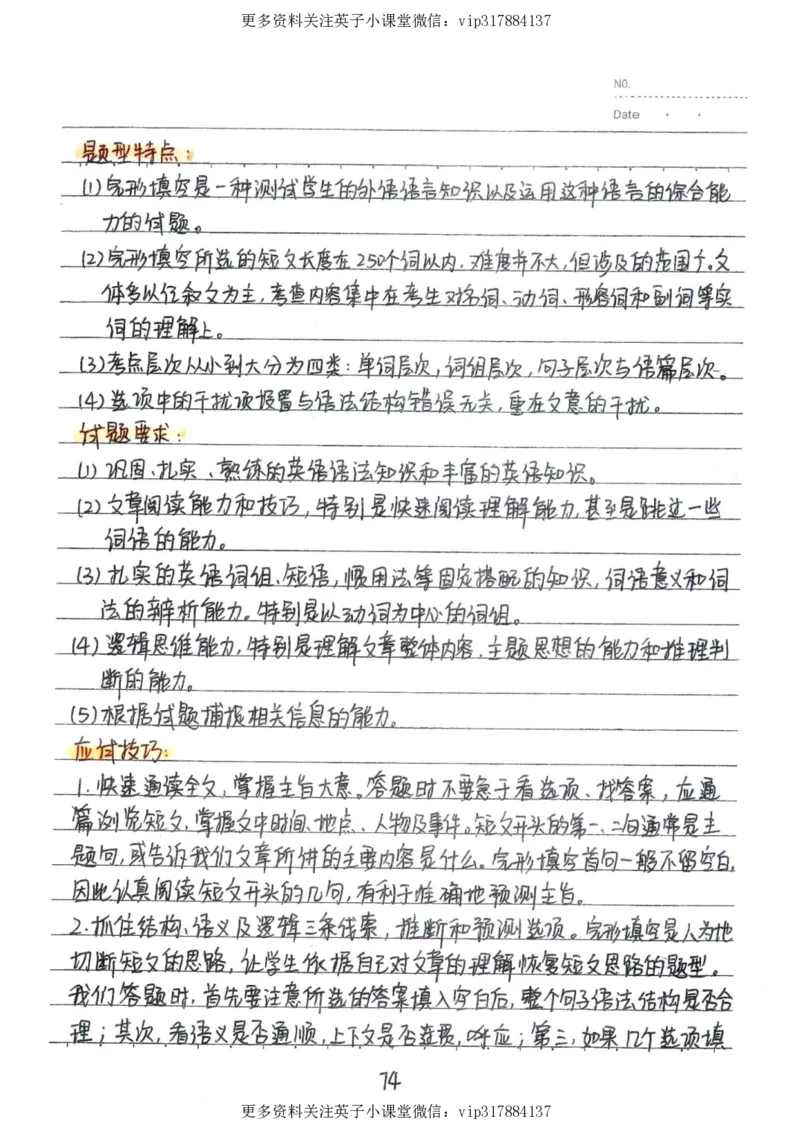 更多资料关注英子小课堂微信：vip317884137
NO.
Date
题型特点：
(1)完形填空是一种测试学生的外语语言知识以及运用这种语言的综合能
力的试题。
(2)完形填空所选的短文长度在250个词以内，难度并不大，但涉及的范围广。文
体多以记叙文为主，考查内容集中在考生对名词、动词、形容词和副词等实
词的理解上。
(3)考点层次从小到大分为四类：单词层次，词组层次，句子层次与语篇层次。
(4)选项中的干扰项设置与语法结构错误无关，重在文意的干扰。
试题要求：
(1)巩固、扎实、熟练的英语语法知识和丰富的英语知识。
(2)文章阅读能力和技巧，特别是快速阅读理解能力，甚至是跳过一些
词语的能力。
(3)扎实的英语词组、短语，惯用法等固定搭配的知识，词语意义和词
法的辨析能力。特别是以动词为中心的词组。
(4)逻辑思维能力，特别是理解文章整体内容，主题思想的能力和推理判
断的能力。
(5)根据试题捕捉相关信息的能力。
应试技巧：
1.快速通读全文，掌握主旨大意。答题时不要急于看选项、找答案，应通
篇浏览短文，掌握文中时间、地点、人物及事件。短文开头的第一、二句通常是主
题句，或告诉我们文章所讲的主要内容是什么。完形填空首句一般不留空白，
因此认真阅读短文开头的几句，有利于准确地预测主旨。
2.抓住结构、语义及逻辑三条线索，推断和预测选项。完形填空是人为地
切断短文的思路，让学生依据自己对文章的理解恢复短文思路的题型。
我们答题时，首先要注意所选的答案填入空白后，整个句子语法结构是否合
理；其次，看语义是否通顺，上下文是否连贯，呼应；第三，如果几个选项填
74
更多资料关注英子小课堂微信：vip317884137